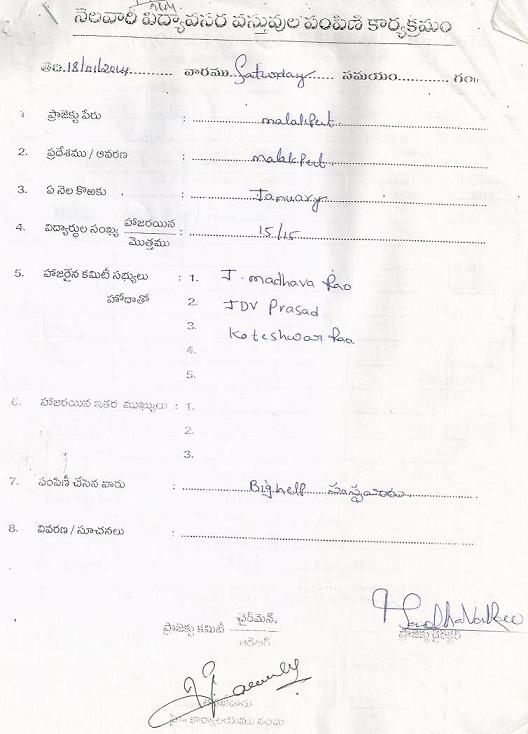 నెలవారీ విద్యావసర వస్తువుల పంపిణి కార్యక్రమం
తేది.18/01/2014 వారము. Saturday సమయం గం॥
1. ప్రాజెక్టు పేరు : malakpet
2. ప్రదేశము / ఆవరణ : malakpet
3. ఏ నెల కొఱకు : January
4. విద్యార్థుల సంఖ్య హాజరయిన / మొత్తము : 15/15
5. హాజరైన కమిటీ సభ్యులు : 1. J. madhava Rao
హోదాతో 2. JDV Prasad
3. Koteshwar Rao
4.
5.
6. హాజరయిన ఇతర ముఖ్యులు : 1.
2.
3.
7. పంపిణీ చేసిన వారు : Bighelp
8. వివరణ / సూచనలు :
ప్రాజెక్టు కమిటీ ఛైర్మెన్.
ప్రాజెక్టు డైరెక్టర్
కార్యాలయము నందు